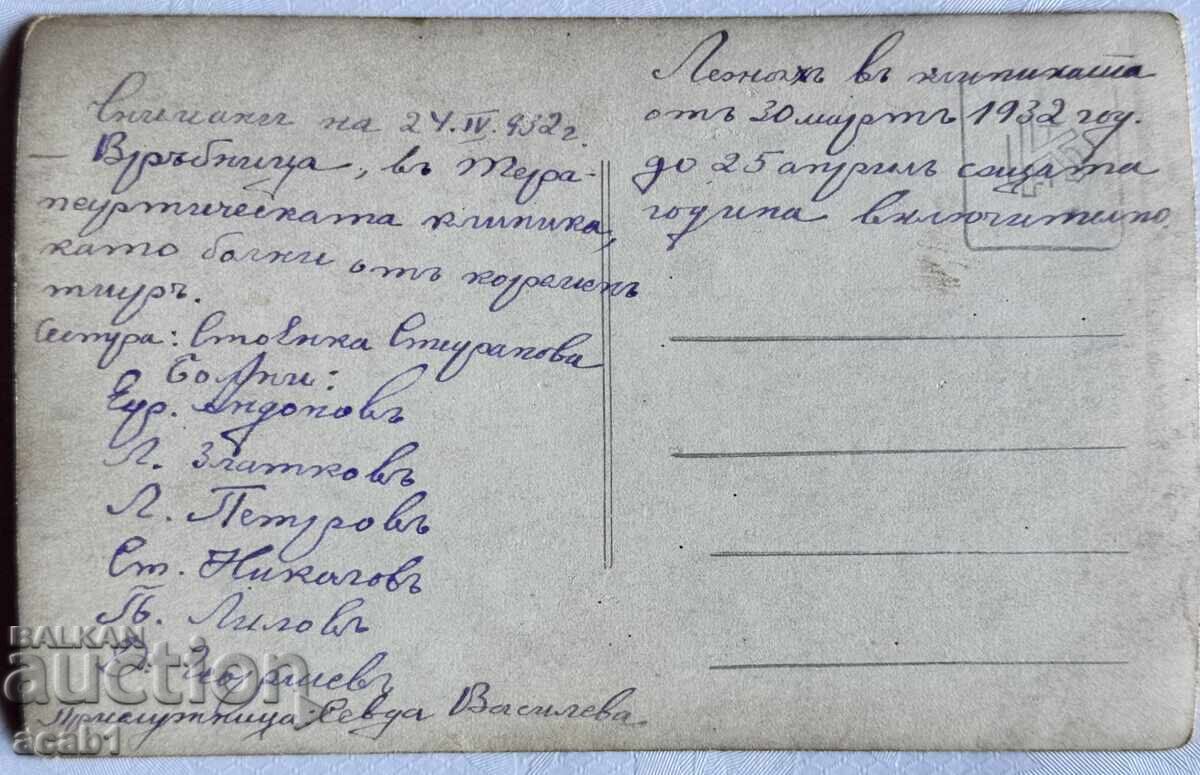 Снимани на 24.IV.932 г.
– Връбница, въ Тера-
певртическата клиника,
като болни отъ коременъ
тифъ.
Сестра: Стоенка Стефанова
Болни:
Андоновъ
Л. Златковъ
Л. Петровъ
Ст. Николовъ
П. Лиловъ
Георгиевъ
Прислужница: Севда Василева.
Лежахъ въ клиниката
отъ 30 мартъ 1932 год.
до 25 априлъ сащата
година включително.
BALKAN
auction
acab1